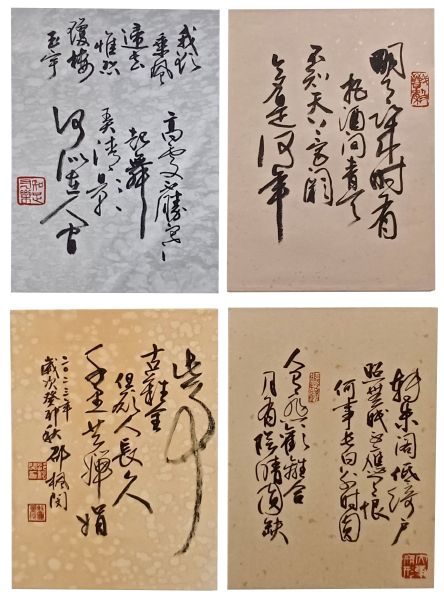 明月几时有
把酒问青天
不知天上宫阙
今夕是何年
我欲
乘風
归去
惟恐
瓊樓
玉宇
高處不勝寒
起舞
弄清影
何似在人間
转朱阁低绮户
照無眠不應有恨
何事长向别时圆
人有悲歡離合
月有陰晴圆缺
此事
古難全
但願人長久
千里共嬋娟
二〇二三年
歲次癸卯秋 邵楓